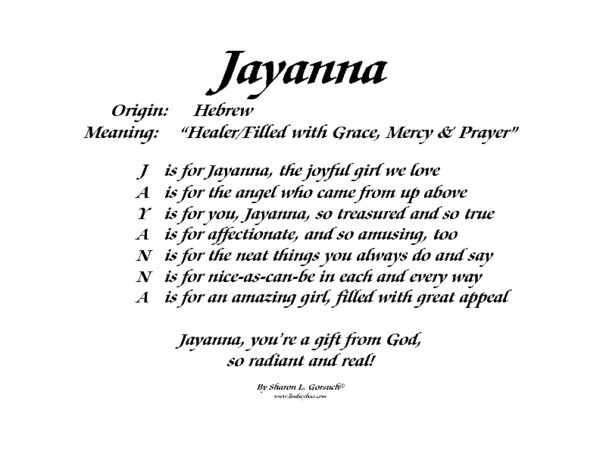 Jayanna
Origin: Hebrew
Meaning: “Healer/Filled with Grace, Mercy & Prayer”
J is for Jayanna, the joyful girl we love
A is for the angel who came from up above
Y is for you, Jayanna, so treasured and so true
A is for affectionate, and so amusing, too
N is for the neat things you always do and say
N is for nice-as-can-be in each and every way
A is for an amazing girl, filled with great appeal
Jayanna, you're a gift from God,
so radiant and real!
By Sharon L. Gorsuch©